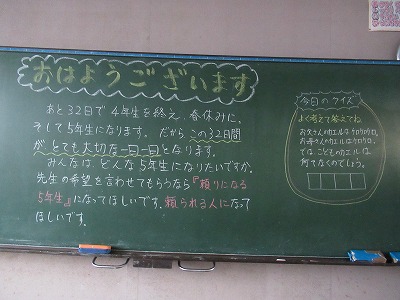 おはようございます
あと32日で4年生を終え、春休みに。
そして5年生になります。だから、この32日間
が、とても大切な一日一日となります。
みんなは、どんな5年生になりたいですか。
先生の希望を言わせてもらうなら『頼りになる
5年生』になってほしいです。頼られる人になって
ほしいです。
今日のクイズ
よく考えて答えてね
お父さんのカエルはケロケロケロ。
お母さんのカエルはケロケロ。
では、こどものカエルは
何てなくのでしょう。